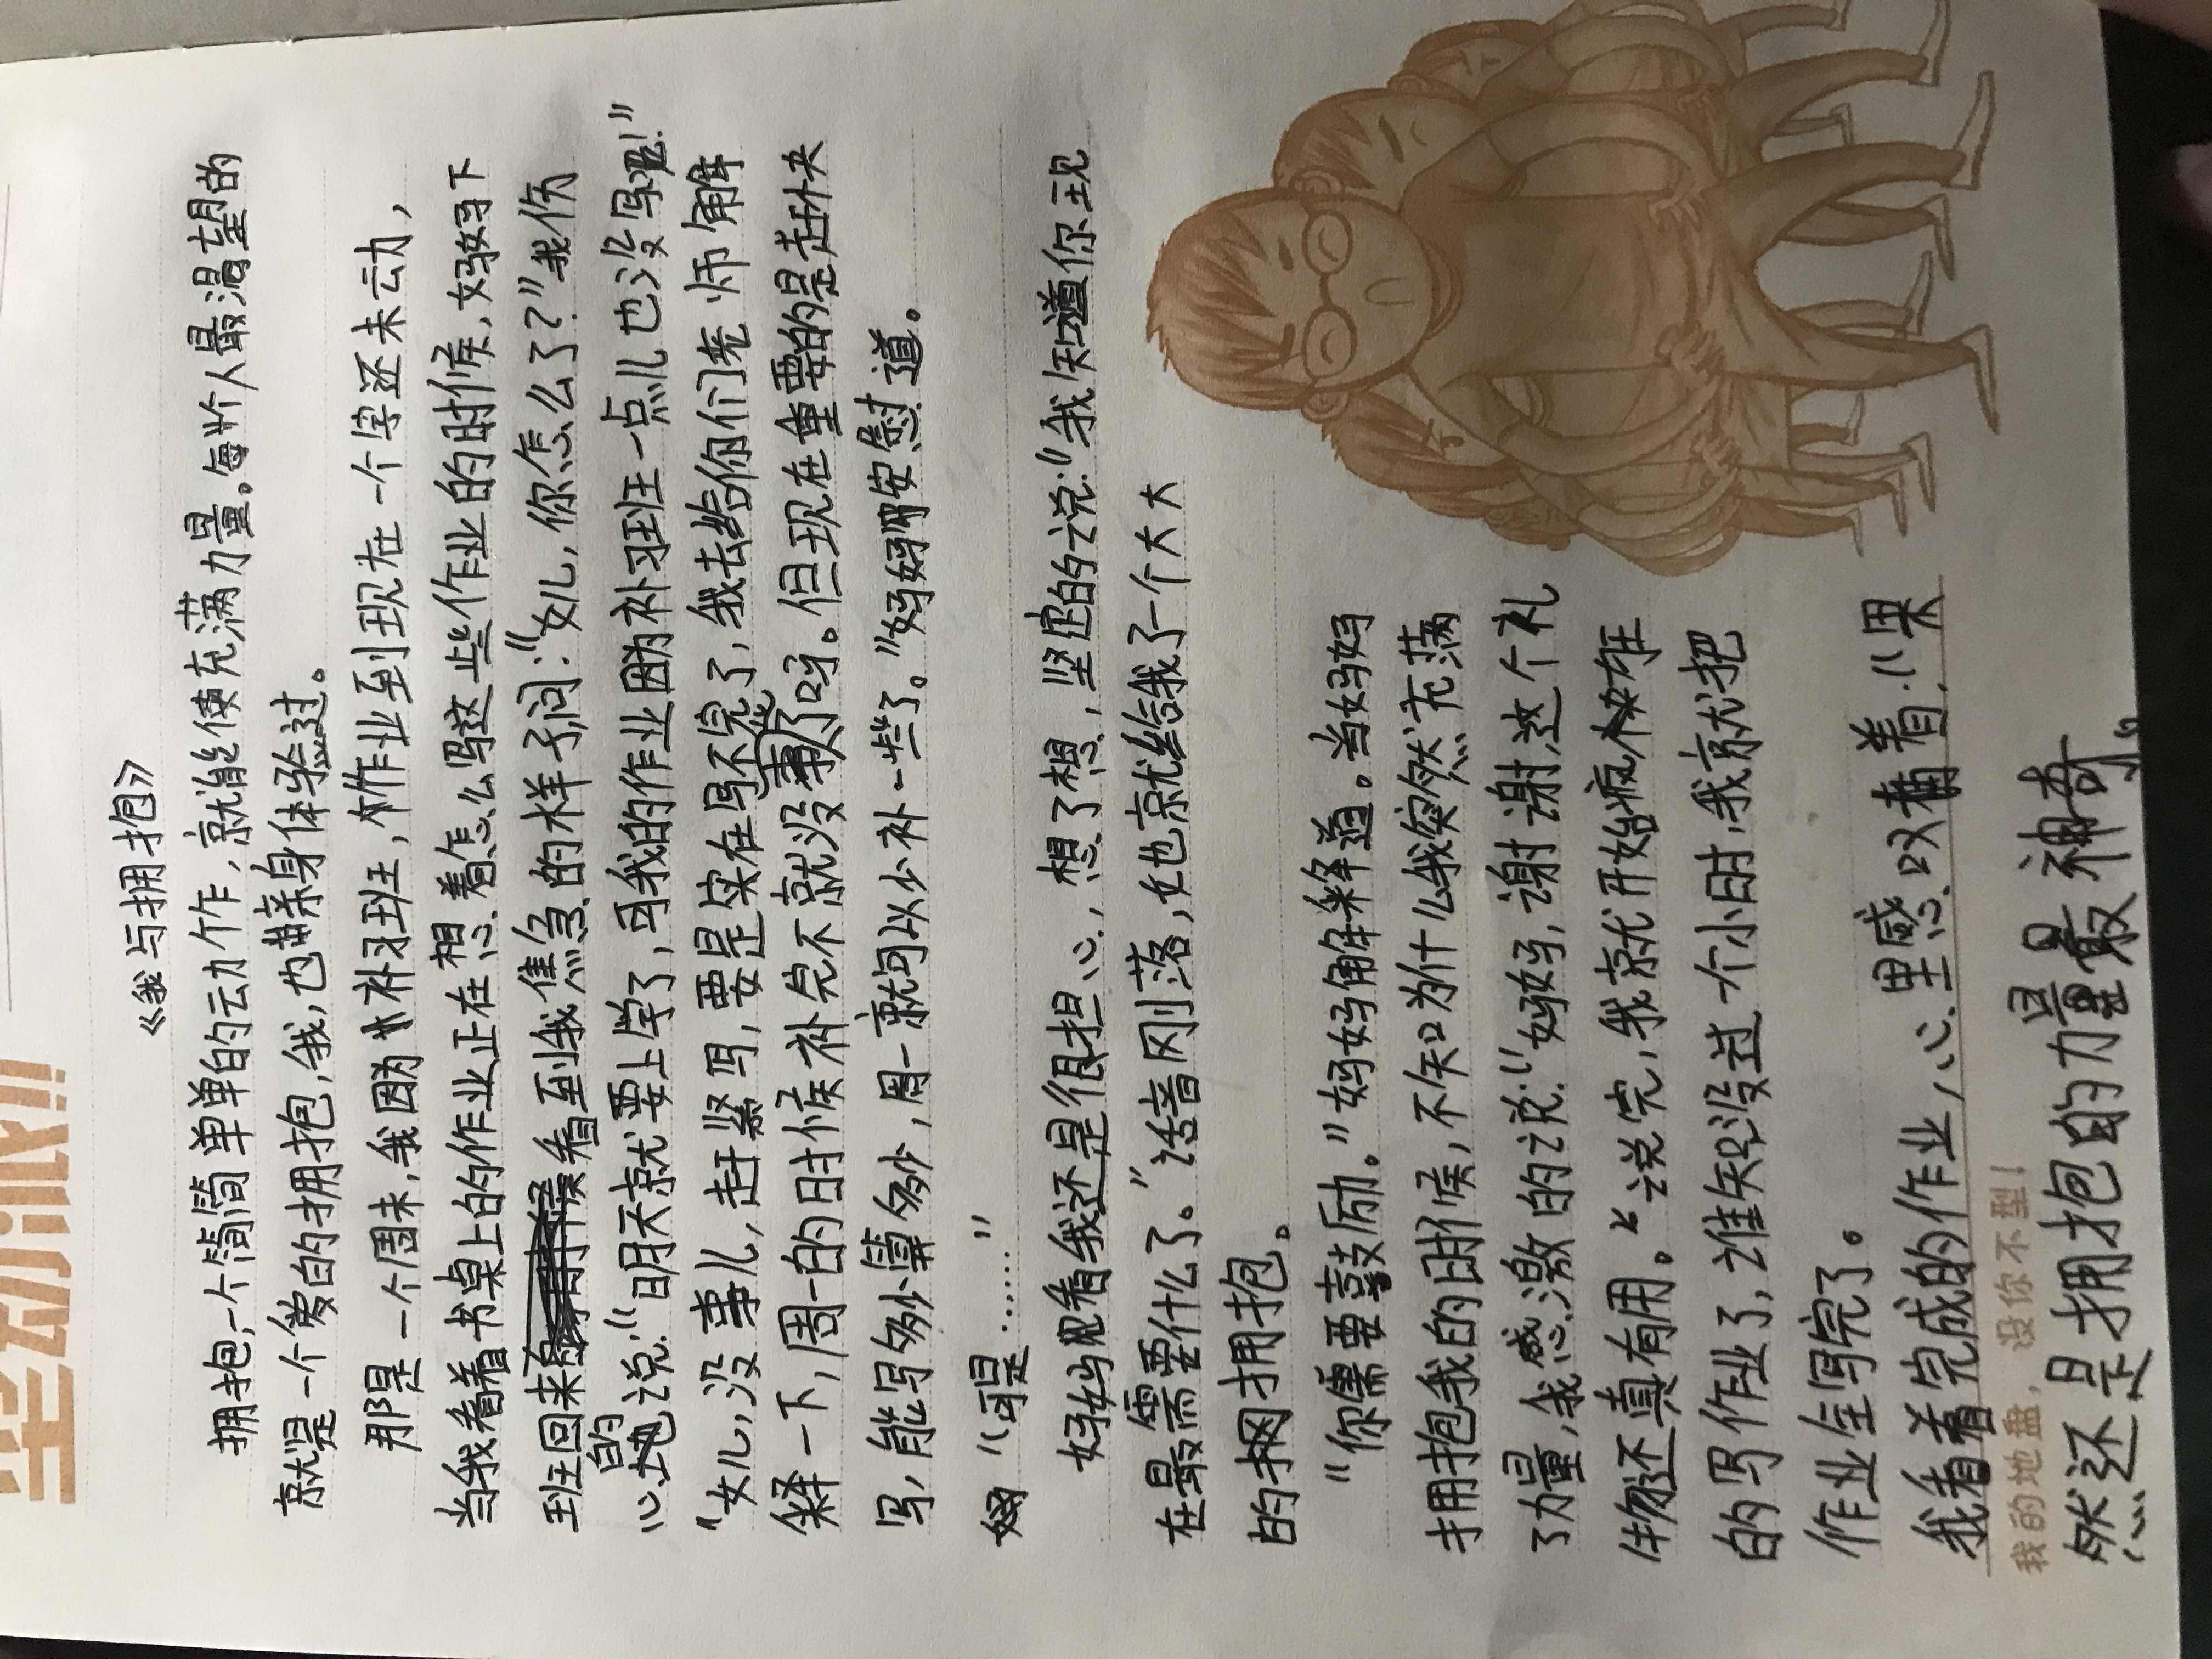 《我与拥抱》
拥抱,一个简简单单的动作,就能使充满力量。每个人最渴望的
就是一个爱的拥抱,我,也亲身体验过。
那是一个周末,我因为补习班,作业到现在一个字还未动,
当我看着书桌上的作业正在想着怎么写这些作业的时候,妈妈下
班回来看到我焦急的样子,问:“女儿,你怎么了?”我伤
心的说:“明天就要上学了,可我的作业因为补习班一点儿也没写呢!”
“女儿,没事儿,赶紧写,要是实在写不完了,我去给你们老师解
释一下,周一的时候补完不就没事了吗。但现在重要的是赶快
写,能写多少算多少,周一就可以少补一些了。”妈妈安慰道。
“可是……”
妈妈看我还是很担心,想了想,坚定的说:“我知道你现
在最需要什么了。”话音刚落,她就给我了一个大大
的拥抱。
“你需要鼓励。”妈妈解释道。当妈妈
拥抱我的时候,不知为什么我突然充满
了力量,我感激的说:“妈妈,谢谢,这个礼
物还真有用。”说完,我就开始疯狂
的写作业了,谁知没过一个小时,我就把
作业全写完了。
我看着完成的作业,心里感叹着:“果
我的地盘,没你不型!
然还是拥抱的力量最神奇。”